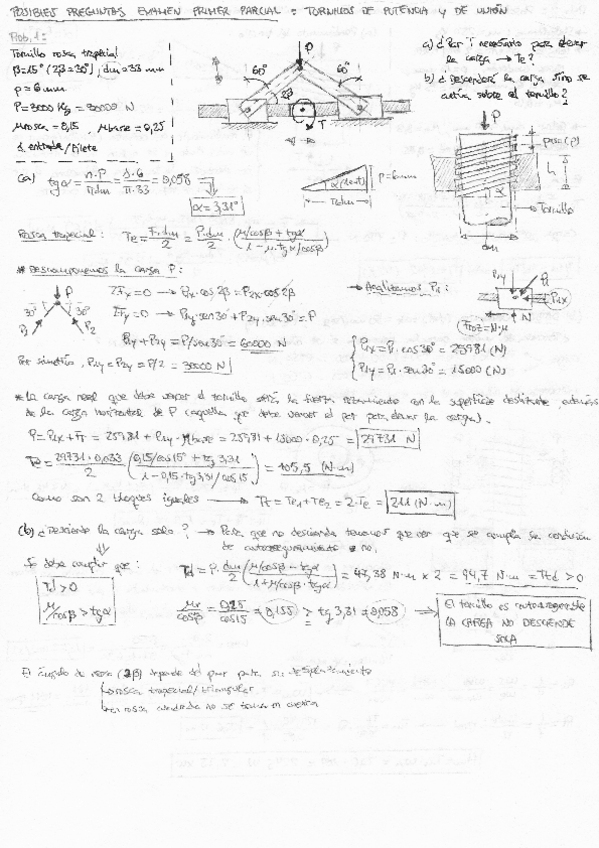 POSIBLES PREGUNTAS EXAMEN PRIMER PARCIAL : TORNILLOS DE POTENCIA Y DE UNIÓN
Prob. 1:
Tornillo rosca trapecial
β=15° (2β=30°), dm=33 mm
p=6mm
P=3000 Kg = 30000 N
μrosca=0,15, μbase=0,25
1 entrada/filete
a) ¿Par T necesario para elevar
la carga → Te?
b) ¿Descenderá la carga si no se
actúa sobre el tornillo?
P
60°
60°
2β
T
P
paso (p)
h
α
Tornillo
dm
(a) tgα = n·P/π·dm = 1·6/π·33 = 0,058
α=3,31°
p=6mm
π·dm
Rosca trapecial: Te = F·dm/2 = P·dm/2 · (μ/cosβ + tgα / 1 - μ·tgα/cosβ)
* Descomponemos la carga P:
P
30°
30°
P1
P2
ΣFx=0 → P1x·cos2β = P2x·cos2β
ΣFy=0 → P1y·sen30 + P2y·sen30 = P
P1y + P2y = P/sen30 = 60000 N
Por simetría, P1y = P2y = P/2 = 30000 N
→ Analizamos P1:
P1y
P1
P1x
N
Froz=N·μ
P1x = P1·cos30° = 25981 (N)
P1y = P1·sen30° = 15000 (N)
* La carga real que debe vencer el tornillo será la fuerza rozamiento con la superficie deslizante, además
de la carga horizontal de P (aquella que debe vencer el par para elevar la carga).
P = P1x + Fr = 25981 + P1y·μbase = 25981 + 15000·0,25 = 29731 N
Te = 29731·0,033/2 (0,15/cos15° + tg 3,31 / 1 - 0,15·tg3,31/cos15) = 105,5 (N·m)
Como son 2 bloques iguales → Tt = Te1 + Te2 = 2·Te = 211 (N·m)
(b) ¿Desciende la carga sola? → Para que no descienda tenemos que ver que se cumpla la condición
de
Se debe cumplir que:
Td > 0
μ/cosβ > tgα
Td = P·dm/2 (μ/cosβ - tgα / 1 + μ/cosβ·tgα) = 47,38 N·m x 2 = 94,7 N·m = Ttd > 0
μr/cosβ = 0,15/cos15 = 0,155 > tg 3,31 = 0,058
El tornillo es
LA CARGA NO DESCIENDE
SOLA
El ángulo de rosca (2β) depende del par para su desplazamiento
rosca trapecial/triangular
en rosca cuadrada no se toma en cuenta